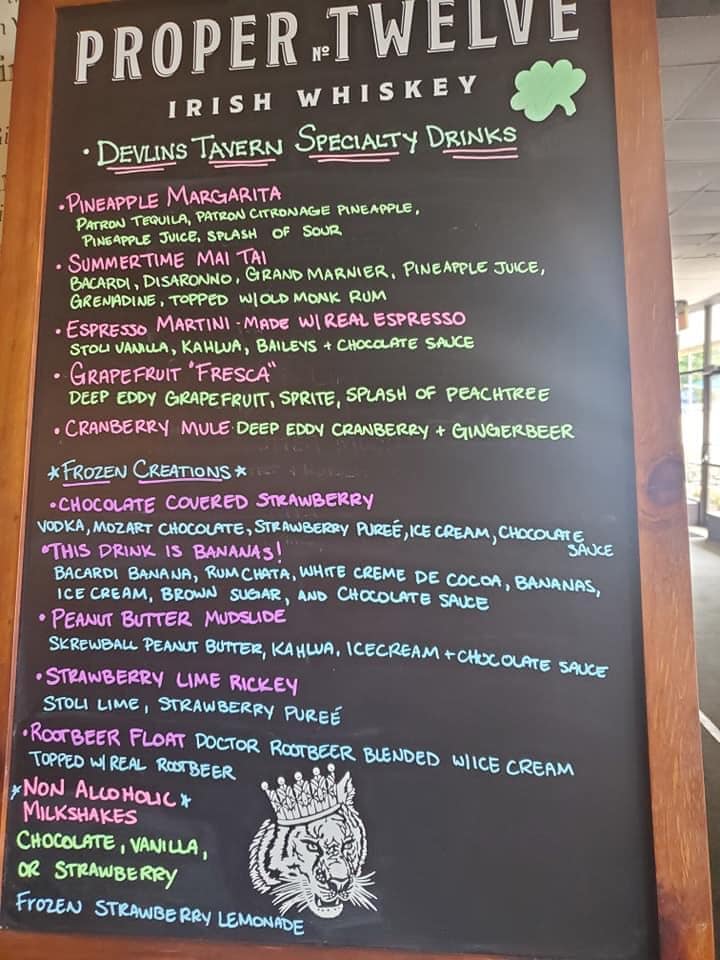 PROPER No. TWELVE
IRISH WHISKEY
• DEVLINS TAVERN SPECIALTY DRINKS
• PINEAPPLE MARGARITA
PATRON TEQUILA, PATRON CITRONAGE PINEAPPLE,
PINEAPPLE JUICE, SPLASH OF SOUR
• SUMMERTIME MAI TAI
BACARDI, DISARONNO, GRAND MARNIER, PINEAPPLE JUICE,
GRENADINE, TOPPED W/ OLD MONK RUM
• ESPRESSO MARTINI - MADE W/ REAL ESPRESSO
STOLI VANILLA, KAHLUA, BAILEYS + CHOCOLATE SAUCE
• GRAPEFRUIT "FRESCA"
DEEP EDDY GRAPEFRUIT, SPRITE, SPLASH OF PEACHTREE
• CRANBERRY MULE DEEP EDDY CRANBERRY + GINGERBEER
*FROZEN CREATIONS*
• CHOCOLATE COVERED STRAWBERRY
VODKA, MOZART CHOCOLATE, STRAWBERRY PUREÉ, ICE CREAM, CHOCOLATE
SAUCE
• THIS DRINK IS BANANAS!
BACARDI BANANA, RUMCHATA, WHITE CREME DE COCOA, BANANAS,
ICE CREAM, BROWN SUGAR, AND CHOCOLATE SAUCE
• PEANUT BUTTER MUDSLIDE
SKREWBALL PEANUT BUTTER, KAHLUA, ICECREAM + CHOCOLATE SAUCE
• STRAWBERRY LIME RICKEY
STOLI LIME, STRAWBERRY PUREÉ
• ROOTBEER FLOAT DOCTOR ROOTBEER BLENDED W/ ICE CREAM
TOPPED W/ REAL ROOTBEER
*NON ALCOHOLIC*
MILKSHAKES
CHOCOLATE, VANILLA,
OR STRAWBERRY
FROZEN STRAWBERRY LEMONADE